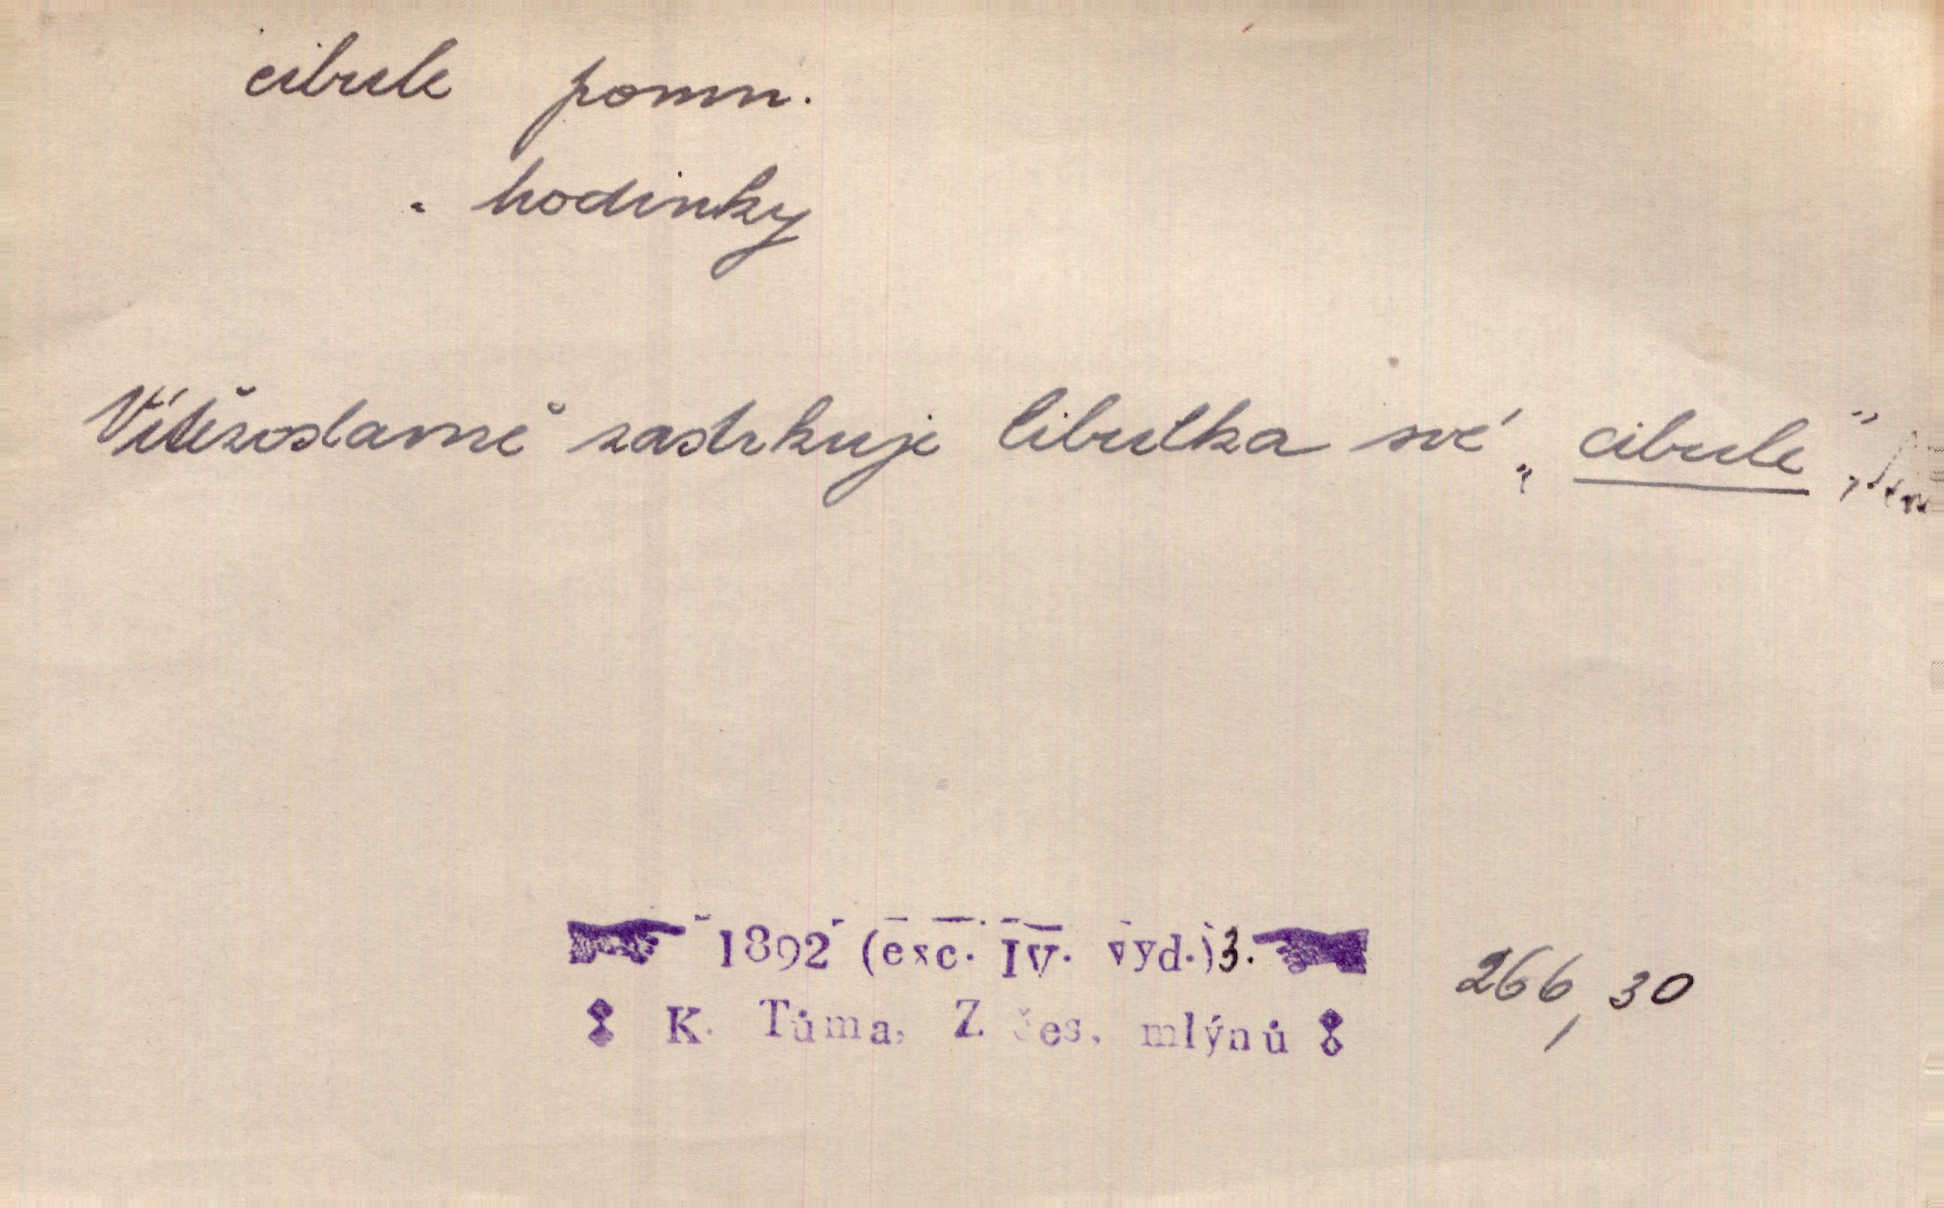 cibule pomn.
. hodinky
Vítězoslavně zastrkuje libulka své „cibule“,
1892 (exc. IV. vyd.) 3.
K. Tůma, Z čes. mlýnů
266, 30